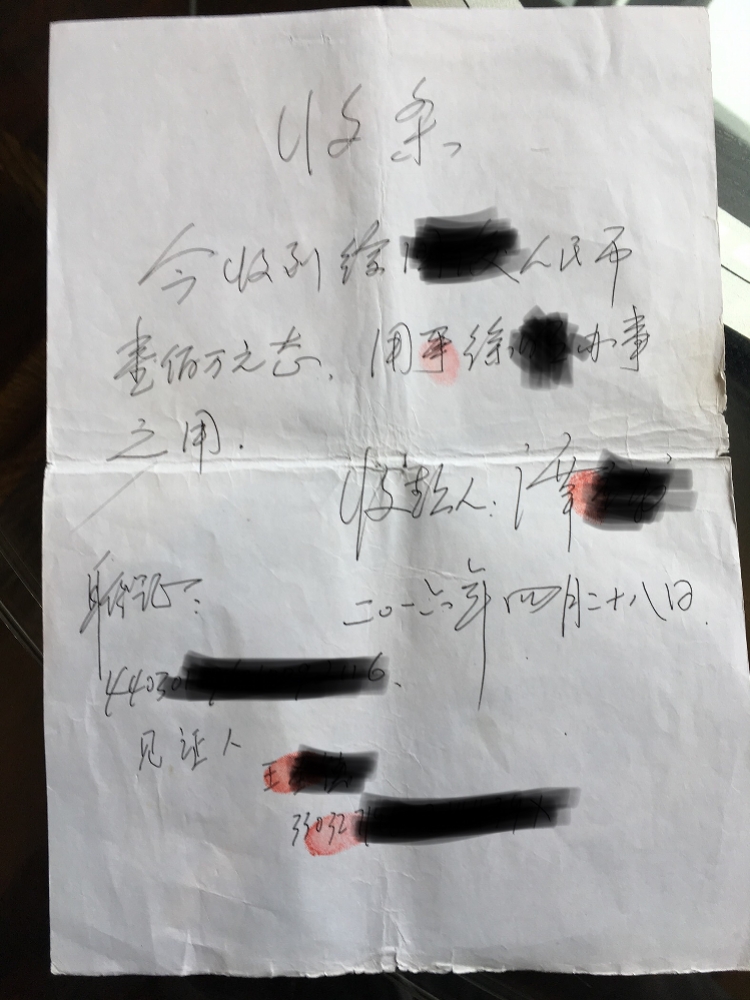 收条
今收到徐 人民币
壹佰万元整. 用于徐 办事
之用.
收款人:
二〇一六年四月二十八日.
身份证:
44030 6.
见证人
王
33032